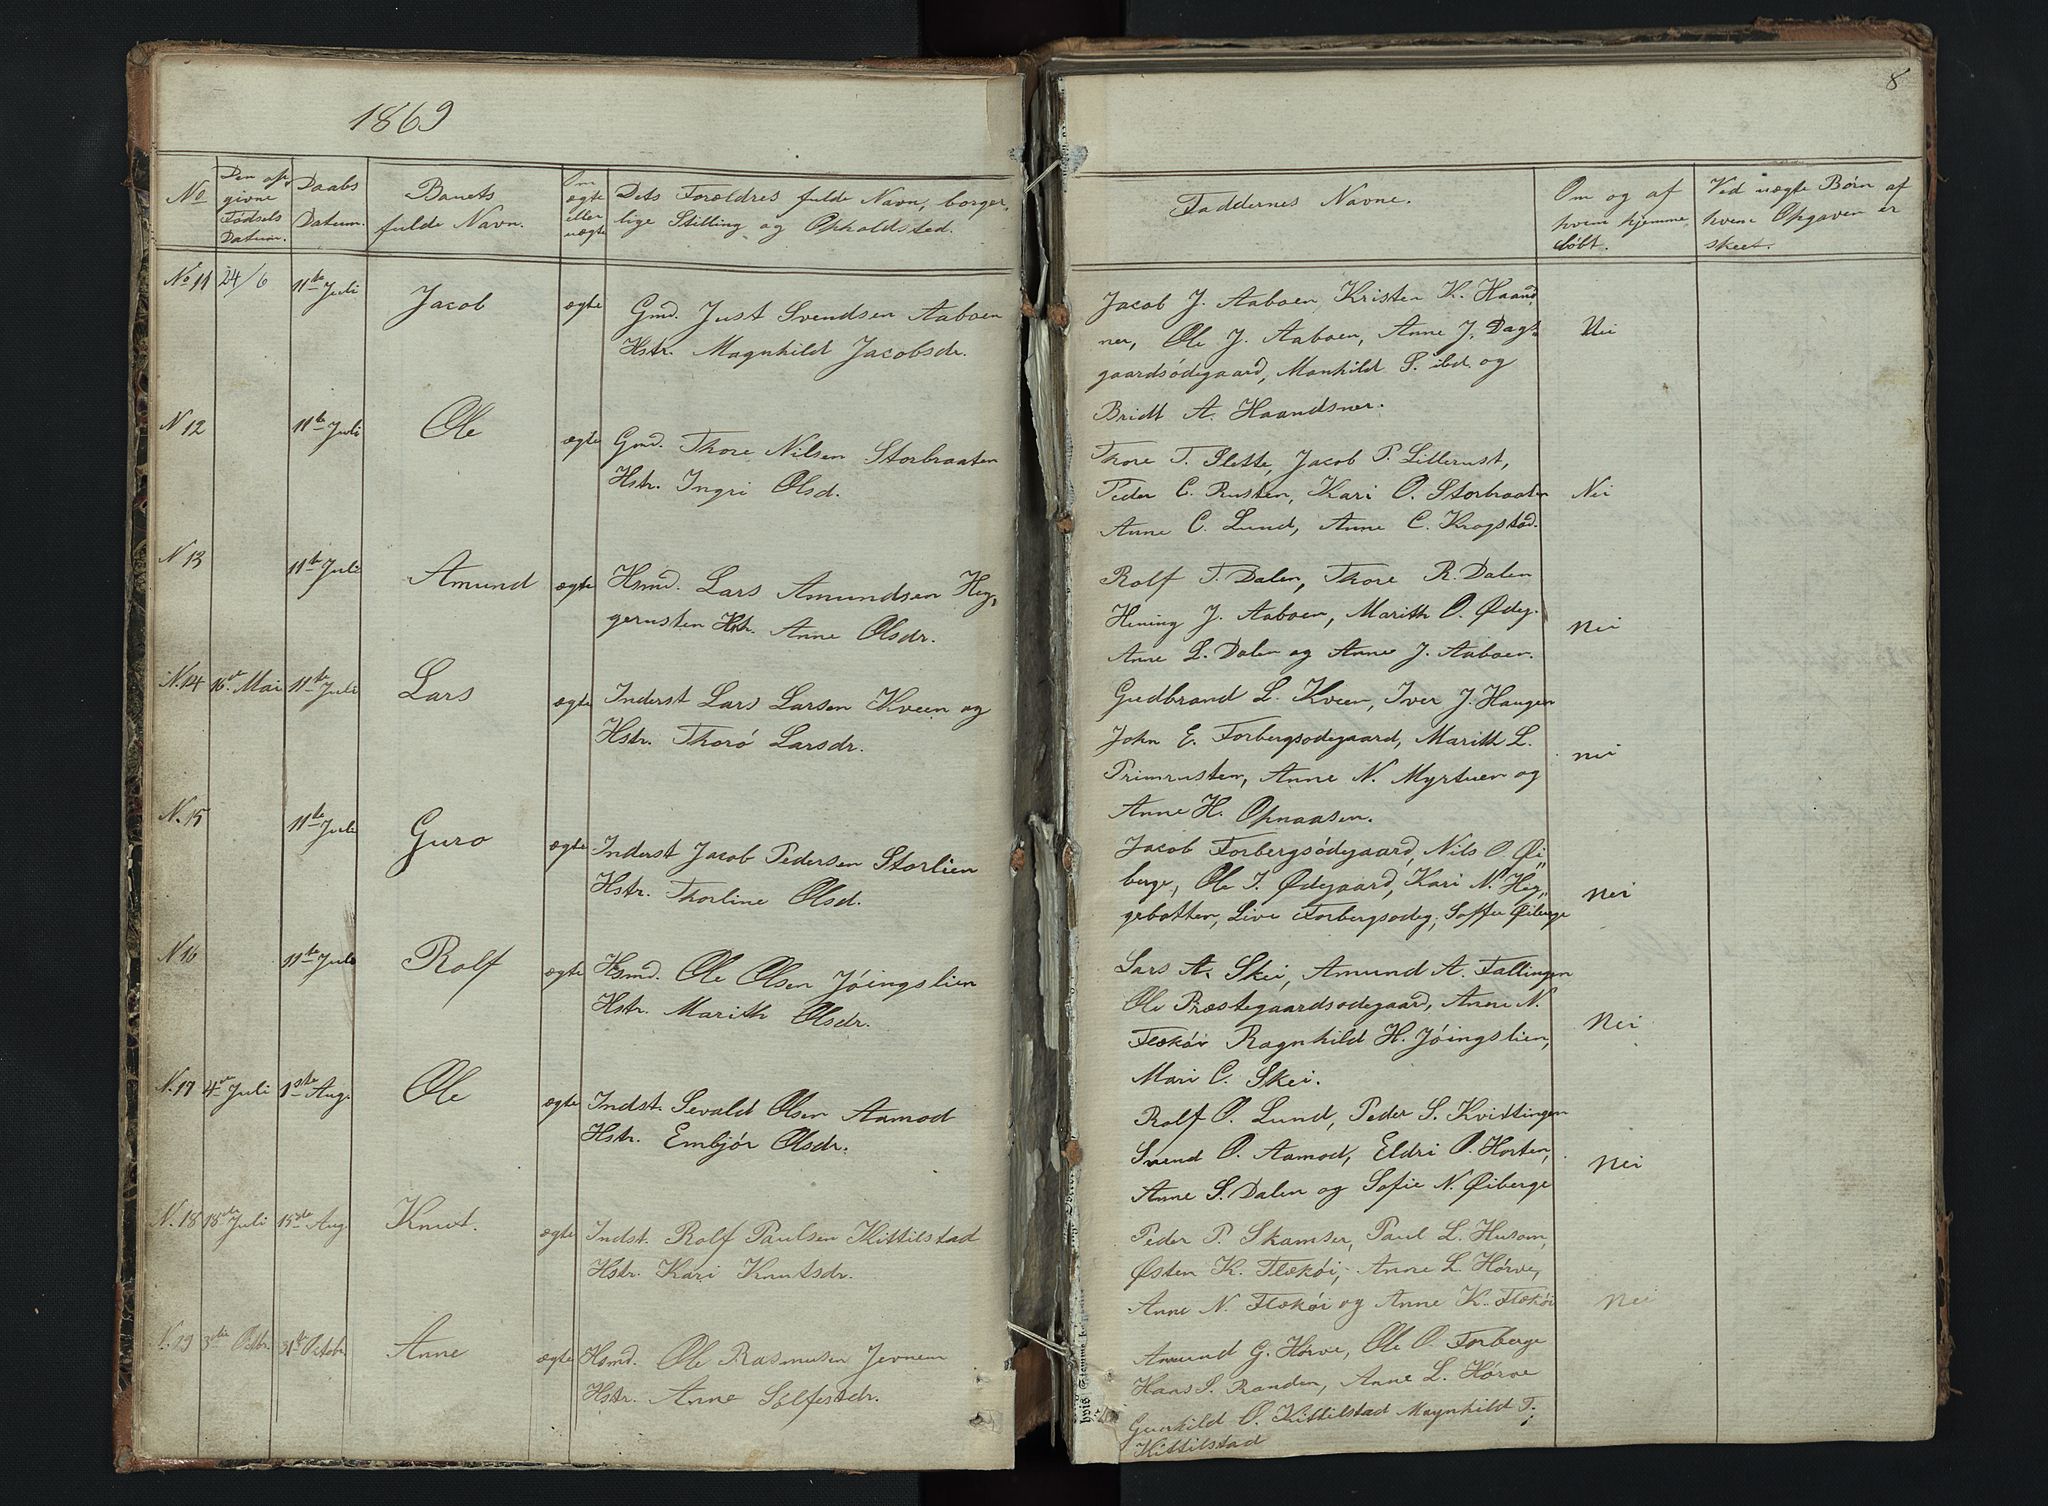 1869
8
No
Den op,
givne
Fødsels
Datum.
Daabs
Datum.
Banets
fulde Navn.
Om
ægte
eller
uægte
Dets Forældres fulde Navn, borger,
lige Stilling og Opholdsted.
Faddernes Navne.
Om og af
hvem hjemme,
døbt.
Ved uægte Børn af
hvem Opgaven er
skeet.
No 11 24/6 11te Juli Jacob ægte
Gmd. Just Svendsen Aaboen
Hstr. Magnhild Jacobsdr.
Jacob J. Aaboen, Kristen K. Haands,
ner, Ole J. Aaboen, Anne J. Dags,
gaardsødegaard, Manhild S. ibd. og
Bridt A. Haandsner.
Nei
N 12 11te Juli Ole ægte
Gmd. Thore Nilsen Storbraaten
Hstr. Ingri Olsd.
Thore T. Slette, Jacob P. Lillerust,
Peder C. Rusten, Kari O. Storbraaten
Anne C. Lund, Anne C. Krogstad.
Nei
N 13 11te Juli Amund ægte
Hsmd. Lars Amundsen Heg,
gerusten Hstr. Anne Olsdr.
Rolf T. Dalen, Thore R. Dalen
Hening J. Aaboen, Marith O. Ødeg.
Anne L. Dalen og Anne J. Aaboen.
Nei
N. 14 16de Mai 11te Juli Lars ægte
Inderst Lars Larsen Kveen og
Hstr. Thorø Larsdr.
Gudbrand L. Kveen, Iver J. Haugen
John E. Forbergsødegaard, Marith L.
Primrusten, Anne N. Myrtuen og
Anne H. Opnaasen.
nei
N. 15 11te Juli Guro ægte
Inderst Jacob Pedersen Storlien
Hstr. Thorline Olsd.
Jacob Forbergsødegaard, Nils O. Øi,
berge, Ole T. Ødegaard, Kari N. Heg,
gebotten, Live Forbergsødeg; Soffie Øiberge
Nei
N 16 11te Juli Rolf ægte
Hsmd. Ole Olsen Jöingslien
Hstr. Marith Olsdr.
Lars A. Skei, Amund A. Fallingen
Ole Præstegaardsødegaard, Anne N.
Flækøi Ragnhild H. Jöingslien,
Mari C. Skei.
Nei
N. 17 4de Juli 1ste Aug. Ole ægte
Indst. Sevald Olsen Aamod
Hstr. Embjör Olsdr.
Rolf O. Lund, Peder S. Kvittingen
Svend O. Aamod, Eldri O. Horten,
Anne S. Dalen og Sofie N. Øiberge
Nei
N. 18 18de Juli 15de Aug. Knut. ægte
Indst. Rolf Paulsen Kittilstad
Hstr. Kari Knutsdr.
Peder P. Skamser, Paul L. Husom,
Østen K. Flækøi, Anne L. Hörve,
Anne N. Flækøi og Anne K. Flækøi
Nei
N. 19 3die Octbr. 31te Octobr Anne ægte
Hsmd. Ole Rasmusen Jevnem
Hstr. Anne Sölfestdr.
Amund G. Hörve, Ole O. Forberge
Hans S. Randen, Anne L. Hörve
Gunhild O. Kittilstad Magnhild T.
Kittilstad